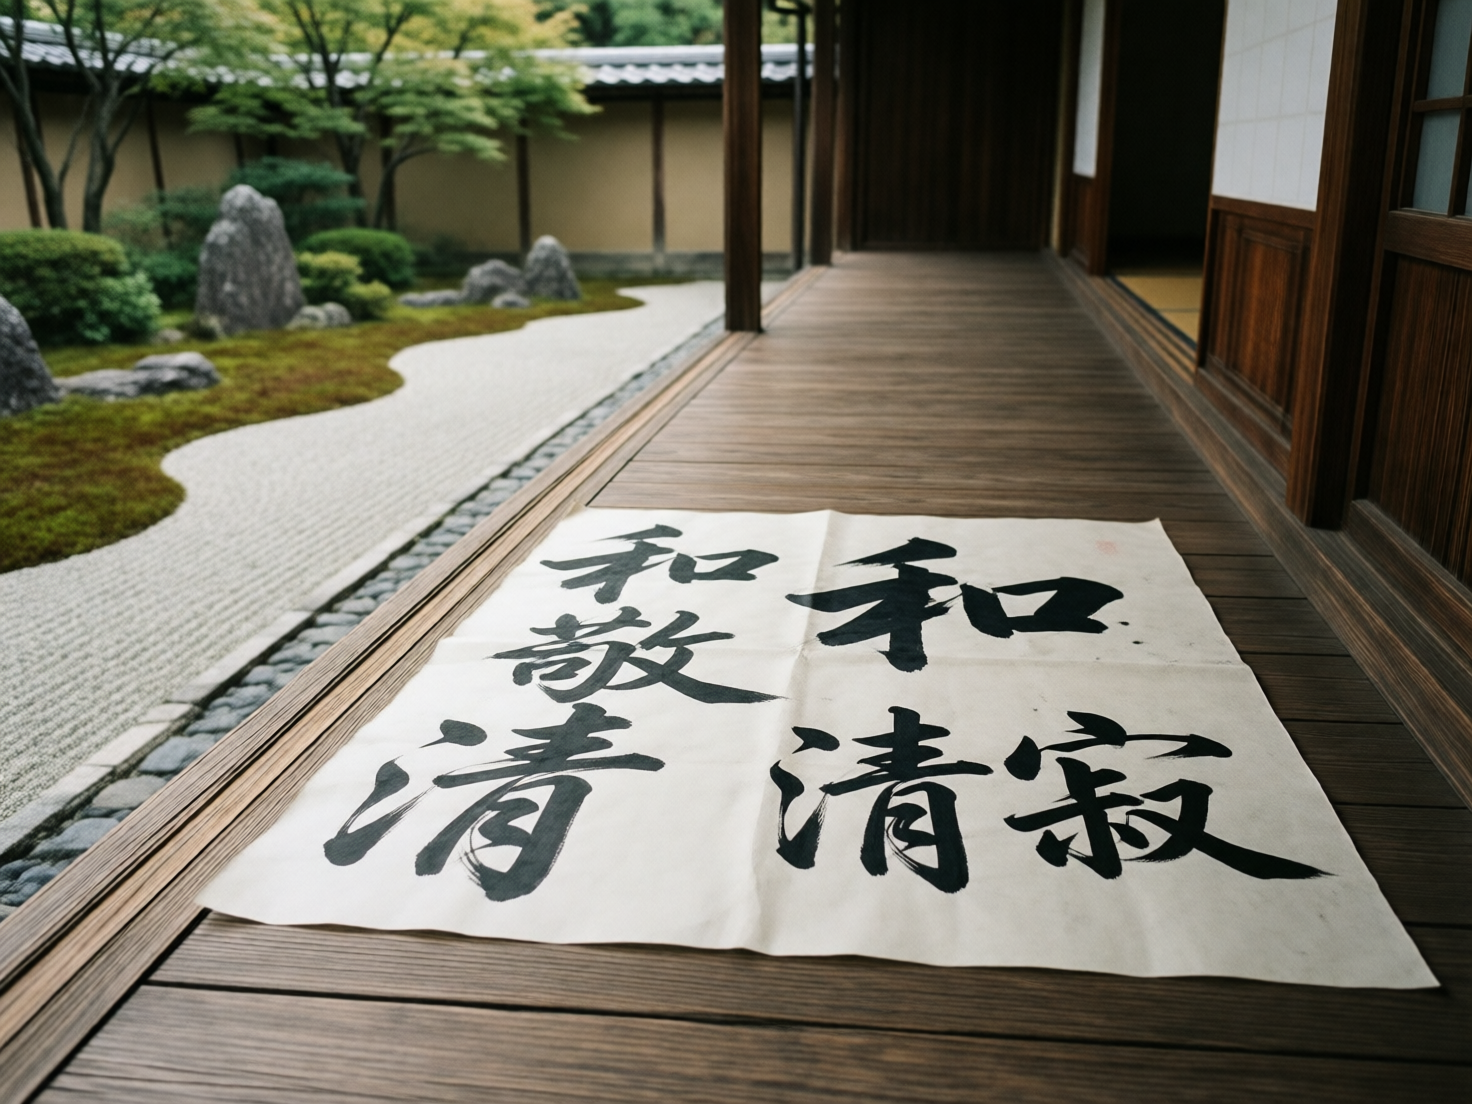 和敬清
和
清寂